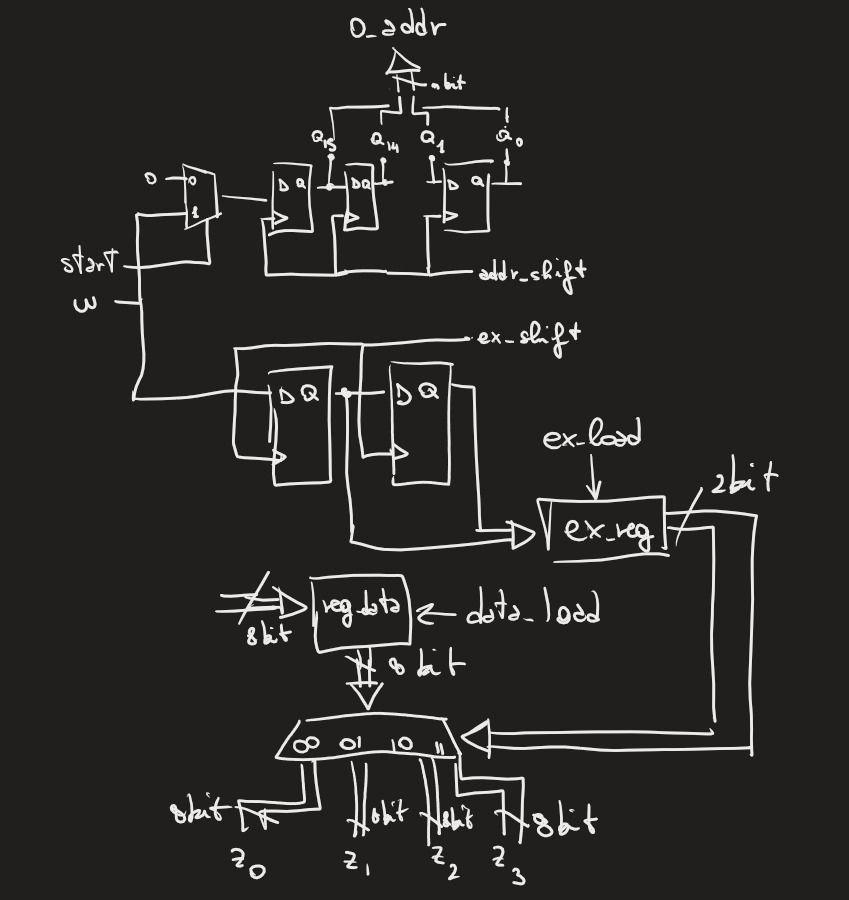 o_addr
nbit
Q15 Q14 Q1 Q0
0 0
1
D Q D Q D Q
start
addr_shift
w
ex_shift
D Q D Q
ex_load
2bit
ex_reg
reg data
data_load
8bit
8 bit
00 01 10 11
8bit 8bit 8bit 8bit
Z0 Z1 Z2 Z3